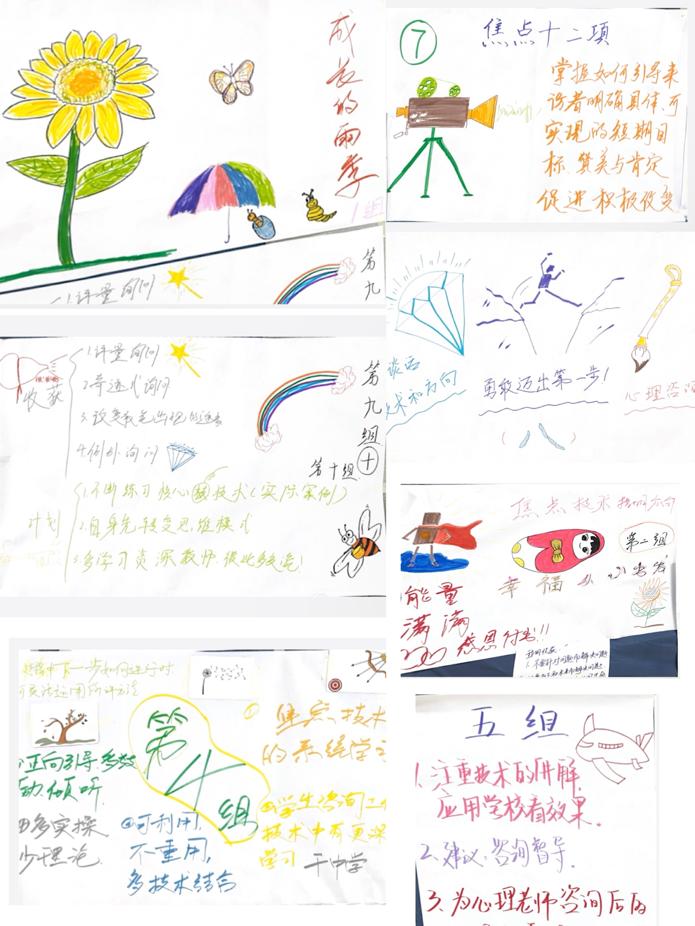 成长的雨季
1组
1.评量询问
第九
⑦
焦点十二项
掌握如何引导来
访者明确具体、可
实现的短期目
标、赞美与肯定
促进积极改变
谈话
技术和方向
勇敢迈出第一步!
心理咨询
收获
1.评量询问
2.奇迹式询问
4.例外询问
第九组
第十组
计划
1.不断练习核心技术(实际案例)
2.自身先转变思维模式
3.多学习资深教师,彼此多交流!
焦点技术指向方向
第二组
幸福从小出发
能量
满满
感恩付出!!
第4组
①
焦点技术
的系统学习
正向引导多鼓
动倾听.
多实操
少理论.
④可利用,
不重用,
多技术结合
②学生咨询工作
技术中有更深
学习
干中学
五组
1.注重技术的讲解,
应用学校看效果.
2.建议:咨询督导.
3.为心理老师咨询后的